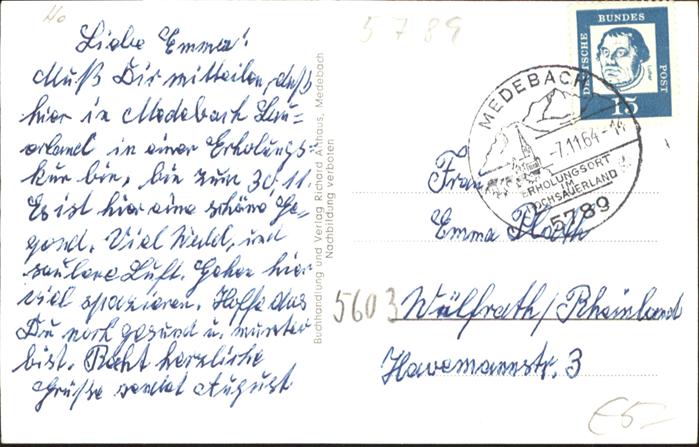 Liebe Emma!
Muß Dir mitteilen, daß
hier in Medebach Sau=
erland in einer Erholungs=
kur bin, bin zum 30.11.
Es ist hier eine schöne Ge=
gend. Viel Wald, und
saubere Luft. Gehen hier
viel spazieren. Hoffe das
Du noch gesund u. munter
bist. Recht herzliche
Grüße sendet August
Buchhandlung und Verlag Richard Ashaus, Medebach
Nachbildung verboten
5789
DEUTSCHE BUNDES POST
Luther
15
MEDEBACH
-7.11.64-
ERHOLUNGSORT
IM
HOCHSAUERLAND
5789
Frau
Emma Plath
5603 Wülfrath/Rheinland
Havemannstr. 3
€5-